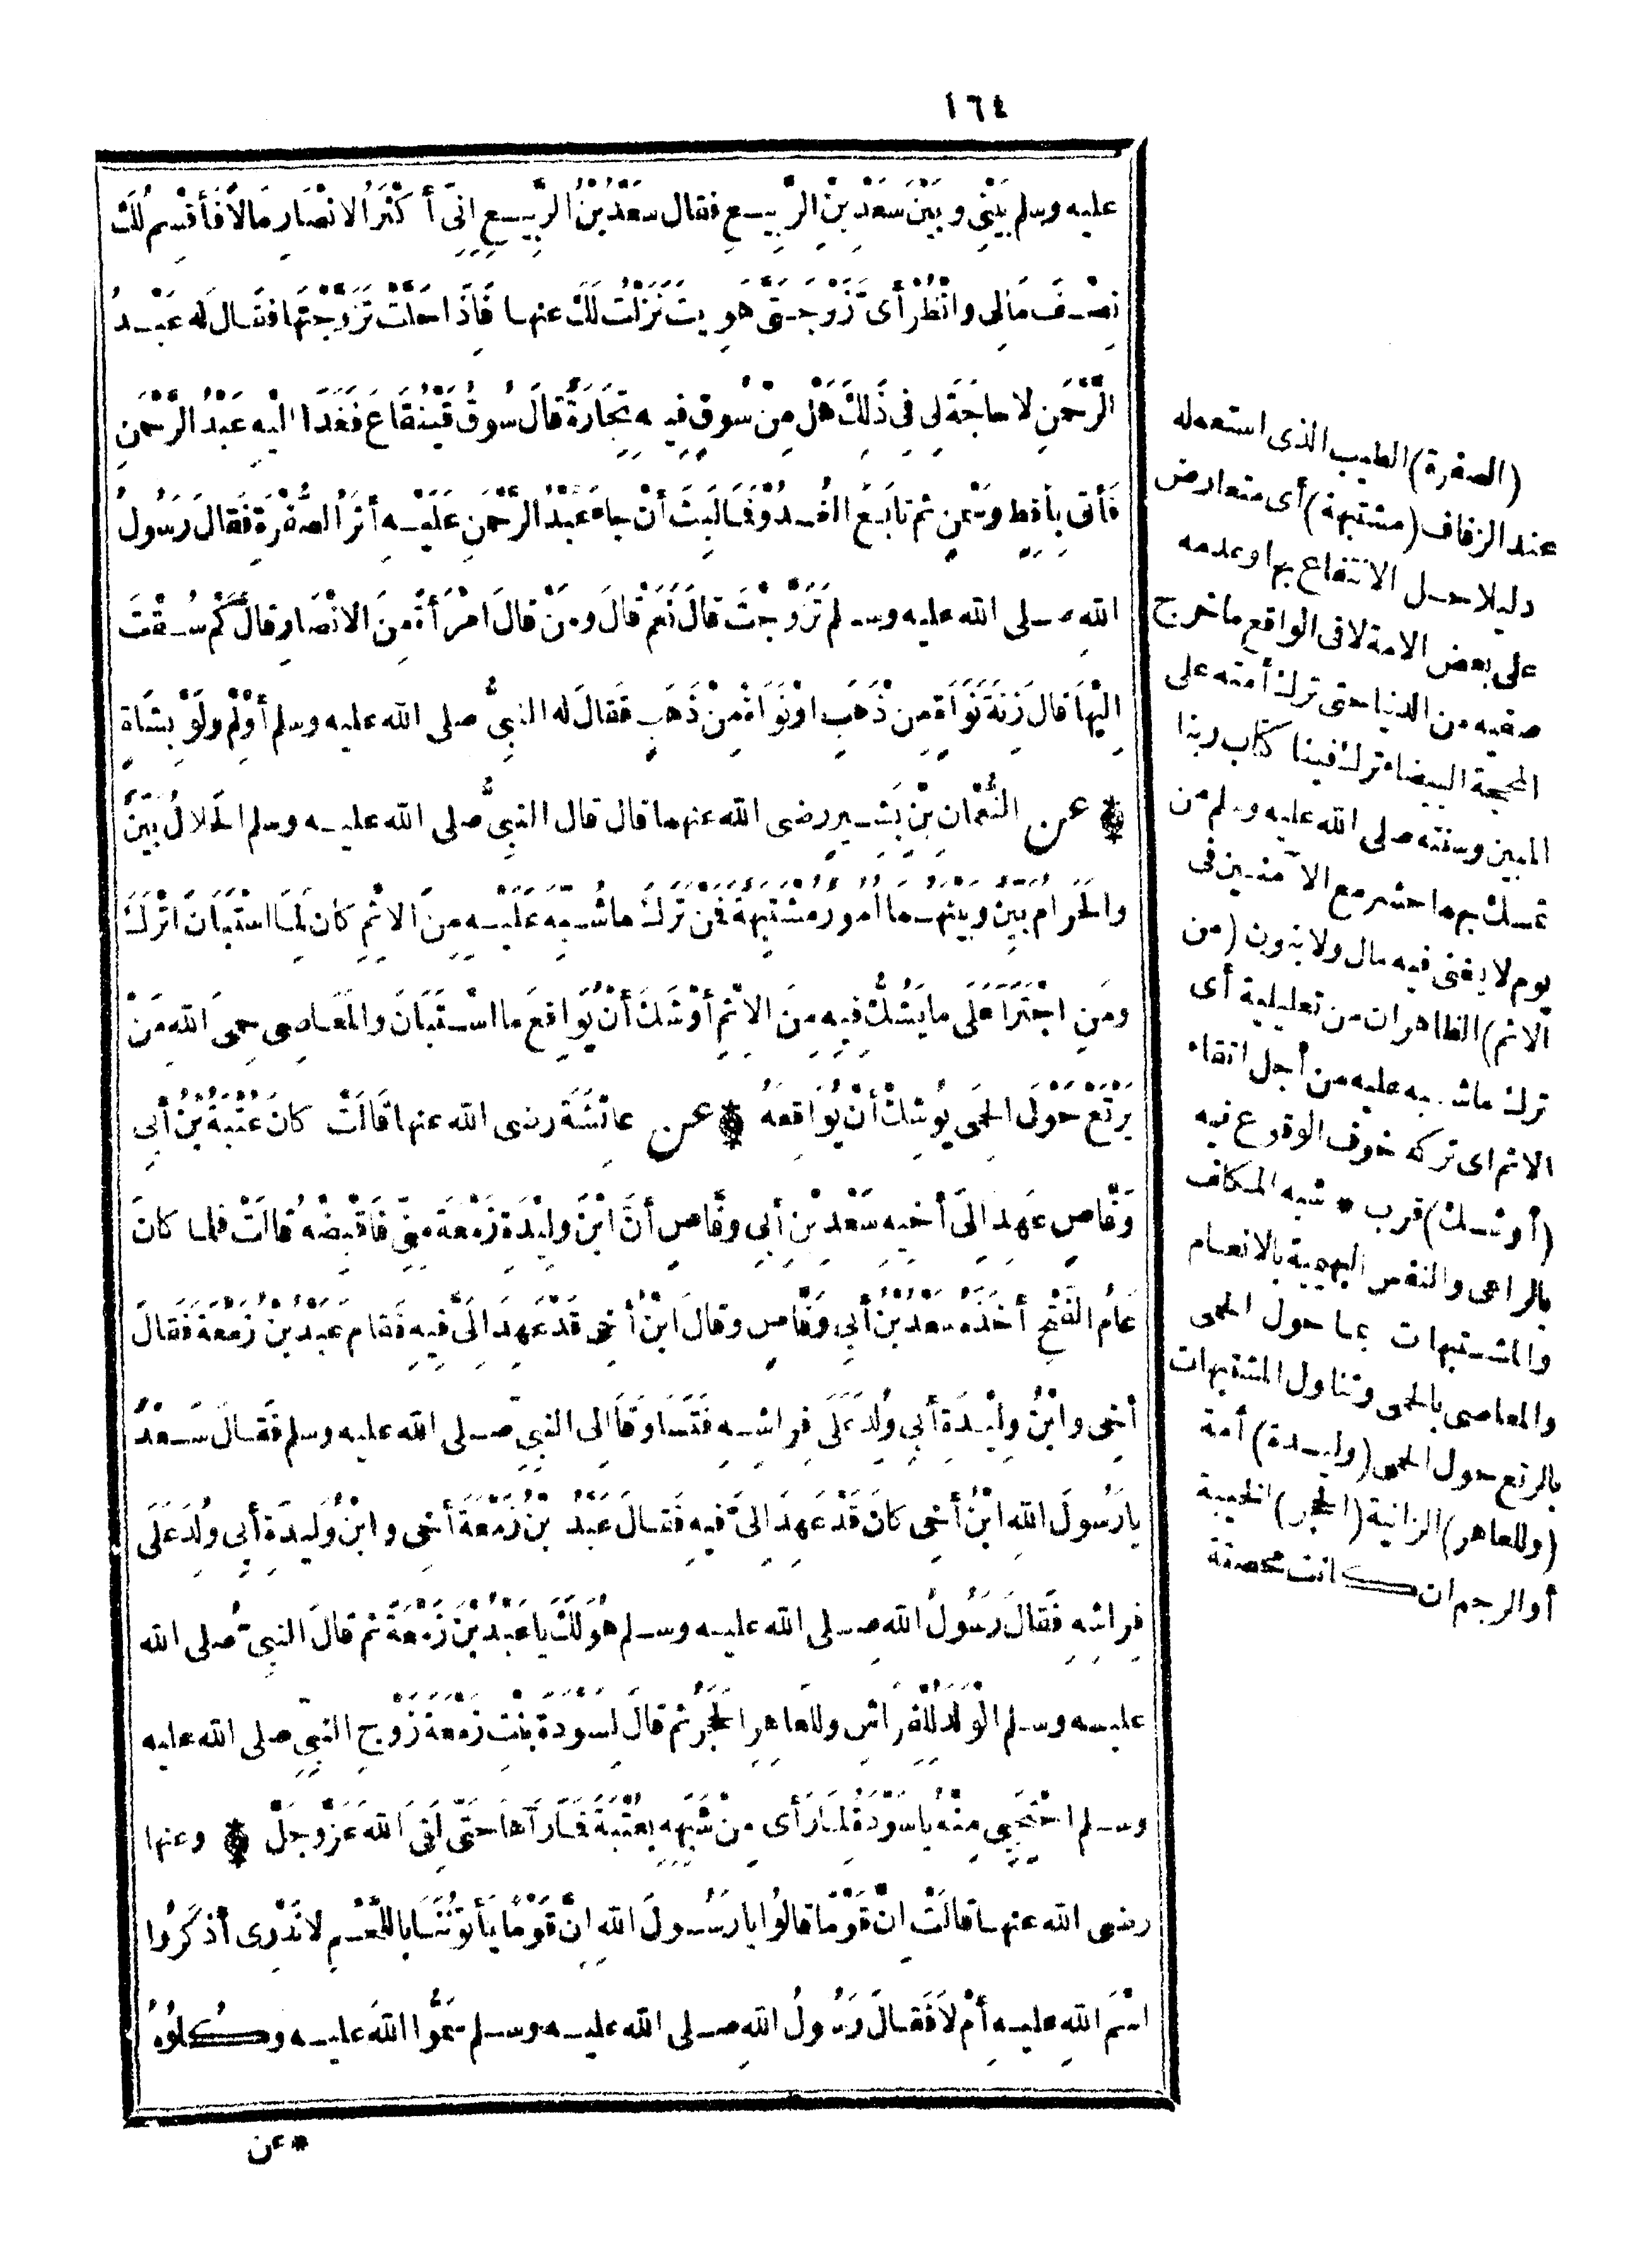 ١٦٤
عليه وسلم بَيْنِي وبَيْنَ سَعْدِ بْنِ الرَّبِيعِ فقال سَعْدُ بْنُ الرَّبِيعِ إِنِّي أَكْثَرُ الانْصَارِ مَالاً فَأَقْسِمُ لَكَ
نِصْفَ مَالِي وانْظُرْ أَىَّ زَوْجَتَىَّ هَوِيتَ نَزَلْتُ لَكَ عنها فَإِذَا حَلَّتْ تَزَوَّجْتَهَا فقَالَ لَه عَبْدُ
الرَّحْمَنِ لا حاجَةَ لِي فِي ذَلِكَ هَلْ مِنْ سُوقٍ فِيهِ تِجَارَةٌ قالَ سُوقُ قَيْنُقَاعَ فَغَدَا الَيْهِ عَبْدُ الرَّحْمَنِ
فَأَتَى بِأَقِطٍ وسَمْنٍ ثم تَابَعَ الغُدُوَّ فَمَا لَبِثَ أَنْ جاءَ عَبْدُ الرَّحْمَنِ عَلَيْهِ أَثَرُ الصُّفْرَةِ فَقالَ رَسُولُ
اللهِ صلى الله عليه وسلم تَزَوَّجْتَ قالَ نَعَمْ قالَ ومَنْ قالَ امْرَأَةً مِنَ الانْصَارِ قالَ كَمْ سُقْتَ
إِلَيْهَا قالَ زِنَةَ نَوَاةٍ مِن ذَهَبٍ اوْ نَوَاةً مِنْ ذَهَبٍ فَقالَ له النبِيُّ صلى الله عليه وسلم أَوْلِمْ ولَوْ بِشَاةٍ
* عن النُّعْمانِ بْنِ بَشِيرٍ رضى الله عنهما قال قال النبِيُّ صلى الله عليه وسلم الحَلالُ بَيِّنٌ
والحَرامُ بَيِّنٌ وبينهما أُمُورٌ مُشْتَبِهَةٌ فَمَنْ تَرَكَ ما شُبِّهَ عَلَيْهِ مِنَ الاثْمِ كان لِمَا اسْتَبَانَ اتْرَكَ
ومَنِ اجْتَرَأَ عَلَى ما يَشُكُّ فِيهِ مِنَ الاثْمِ أَوْشَكَ أَنْ يُوَاقِعَ ما اسْتَبَانَ والمَعَاصِى حِمَى اللهِ مَنْ
يَرْتَعْ حَوْلَ الحِمَى يُوشِكْ أَنْ يُوَاقِعَهُ * عن عائِشَةَ رضى الله عنها قَالَتْ كانَ عُتْبَةُ بْنُ أَبِي
وَقَّاصٍ عَهِدَ إِلَى أَخِيهِ سَعْدِ بْنِ أَبِي وقَّاصٍ أَنَّ ابْنَ ولِيْدَةِ زَمْعَةَ مِنِّي فَاقْبِضْهُ قالَتْ فلما كانَ
عَامُ الفَتْحِ أَخَذَهُ سَعْدُ بْنُ أَبِي وَقَّاصٍ وقالَ ابْنُ أَخِي قَدْ عَهِدَ إِلَىَّ فِيهِ فَقامَ عَبْدُ بْنُ زَمْعَةَ فَقالَ
أخِى وابْنُ ولِيْدَةِ أَبِي وُلِدَ عَلَى فِراشِهِ فَتَسَاوَقَا إِلى النبِيِّ صلى الله عليه وسلم فَقالَ سَعْدٌ
يا رَسُولَ اللهِ ابْنُ أَخِى كانَ قَدْ عَهِدَ إِلَىَّ فِيهِ فَقالَ عَبْدُ بْنُ زَمْعَةَ أخِى وابْنُ ولِيدَةِ أَبِي وُلِدَ عَلَى
فِراشِهِ فَقالَ رَسُولُ اللهِ صلى الله عليه وسلم هُوَ لَكَ يا عَبْدُ بْنَ زَمْعَةَ ثم قالَ النبِيُّ صلى الله
عليه وسلم الوَلَدُ لِلْفِرَاشِ وللعَاهِرِ الحَجَرُ ثم قالَ لِسَوْدَةَ بِنْتِ زَمْعَةَ زَوْجِ النبِيِّ صلى الله عليه
وسلم احْتَجِبِي مِنْهُ يا سَوْدَةُ لِمَا رَأَى مِنْ شَبَهِهِ بِعُتْبَةَ فَمَا رَآهَا حَتَّى لَقِيَ اللهَ عَزَّ وجَلَّ * وعنها
رضى الله عنها قالَتْ إِنَّ قَوْمًا قالُوا يا رَسُولَ اللهِ إِنَّ قَوْمًا يَأْتُونَنَا بِاللَّحْمِ لا نَدْرِى أَذَكَرُوا
اسْمَ اللهِ عليهِ أَمْ لاَ فَقالَ رَسُولُ اللهِ صلى الله عليه وسلم سَمُّوا اللهَ عليه وكُلُوهُ
*عن
(الصفرة) الطيب الذى استعمله
عند الزفاف (مشتبهة) أى متعارض
دليلا حل الانتفاع بها وعدمه
على بعض الامة لا فى الواقع ما خرج
صفيه من الدنيا حتى ترك أمته على
المحجة البيضاء ترك فينا كتاب ربنا
المبين وسنته صلى الله عليه وسلم من
تمسك بهما حشر مع الآمنين فى
يوم لا يغنى فيه مال ولا بنون (من
الاثم) الظاهر ان من تعليلية أى
ترك ما شبه عليه من أجل اتقاء
الاثم اى تركه خوف الوقوع فيه
(أوشك) قرب * شبه المكلف
بالراعى والنفس البهيمية بالانعام
والمشتبهات بما حول الحمى
والمعاصى بالحمى وتناول المشتبهات
بالرتع حول الحمى (وليدة) أمة
(وللعاهر) الزانية (الحجر) الخيبة
أو الرجم ان كانت محصنة